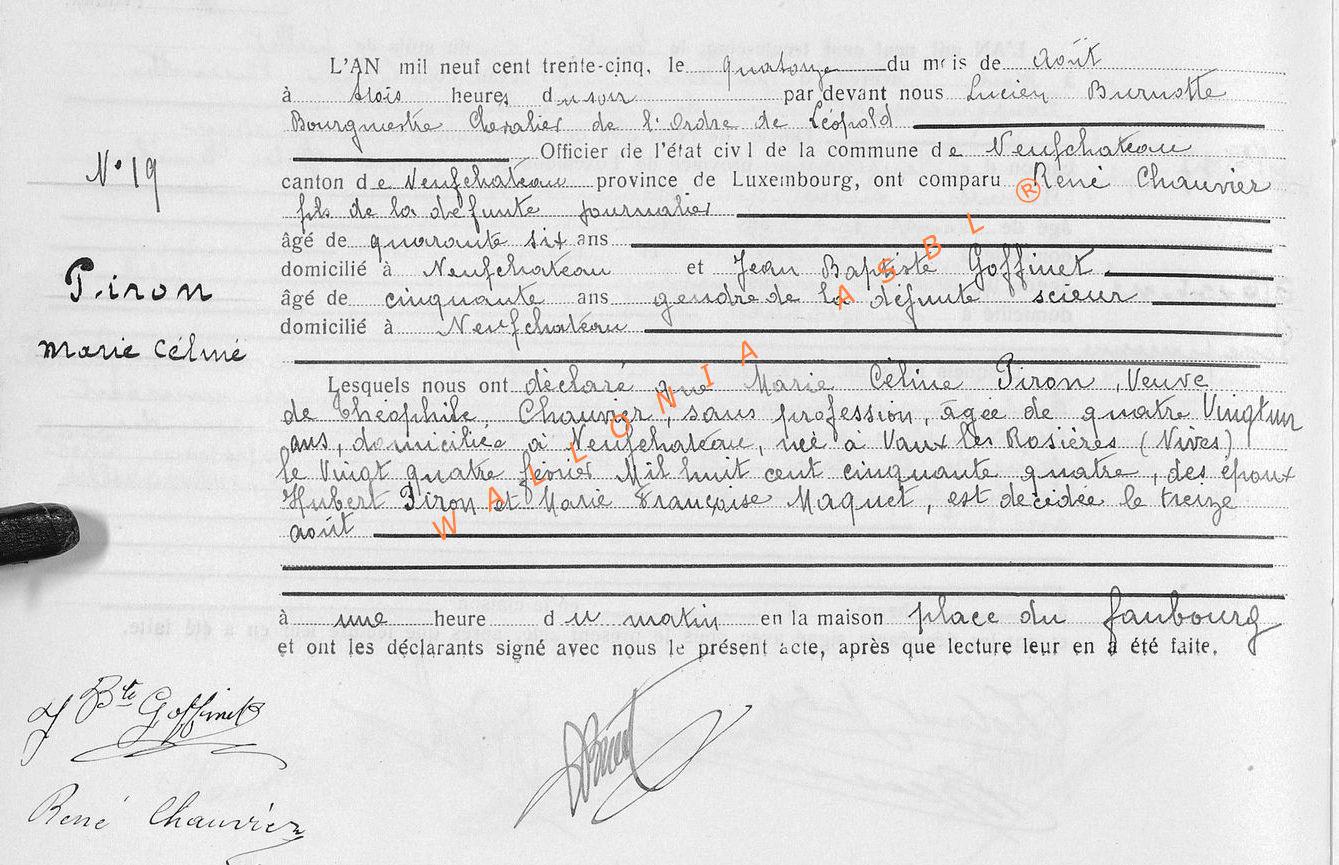 L'AN mil neuf cent trente-cinq, le quatorze du mois de Août
à trois heures du soir par devant nous Lucien Burnotte
Bourgmestre Chevalier de l'Ordre de Léopold
Officier de l'état civil de la commune de Neufchateau
N° 19
canton de Neufchâteau province de Luxembourg, ont comparu René Chauvier
fils de la défunte journalier
âgé de quarante six ans
domicilié à Neufchateau et Jean Baptiste Goffinet
Piron
âgé de cinquante ans gendre de la défunte scieur
domicilié à Neufchateau
Marie Céline
Lesquels nous ont déclaré que Marie Céline Piron, Veuve
de Théophile, Chauvier, sans profession, âgée de quatre Vingt un
ans, domiciliée à Neufchateau, née à Vaux les Rosières (Nives)
le Vingt quatre février Mil huit cent cinquante quatre, des époux
Hubert Piron et Marie Françoise Maquet, est décédée le treize
août
WALLONIA ASBL ®
à une heure du matin en la maison place du faubourg
et ont les déclarants signé avec nous le présent acte, après que lecture leur en a été faite.
J Bte Goffinet
René Chauvier